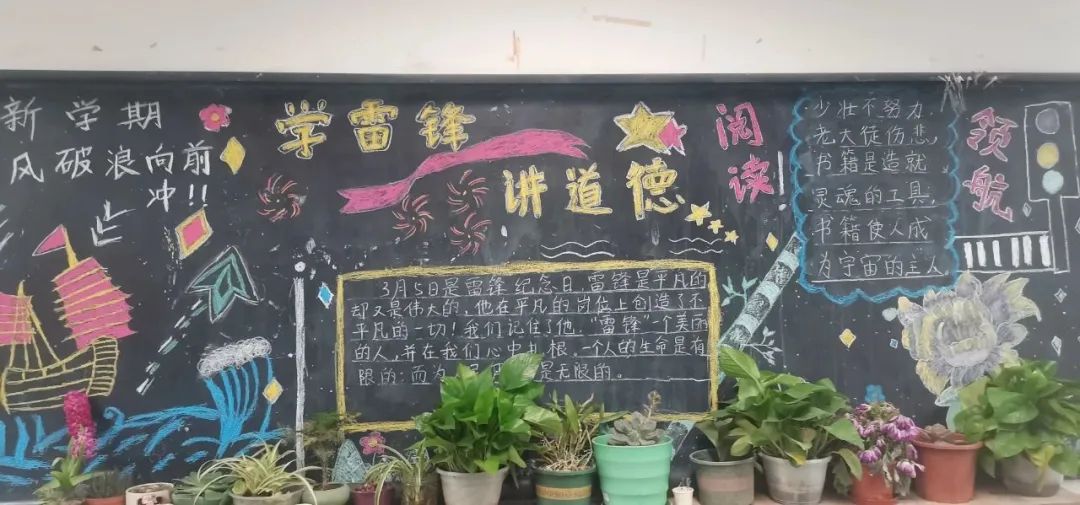 新学期
风破浪向前
冲!!
学雷锋
讲道德
3月5日是雷锋纪念日,雷锋是平凡的
却又是伟大的,他在平凡的岗位上创造了不
平凡的一切!我们记住了他,"雷锋"一个美丽
的人,并在我们心中扎根。一个人的生命是有
限的:而为
是无限的。
阅读
领航
少壮不努力
老大徒伤悲,
书籍是造就
灵魂的工具,
书籍使人成
为宇宙的主人